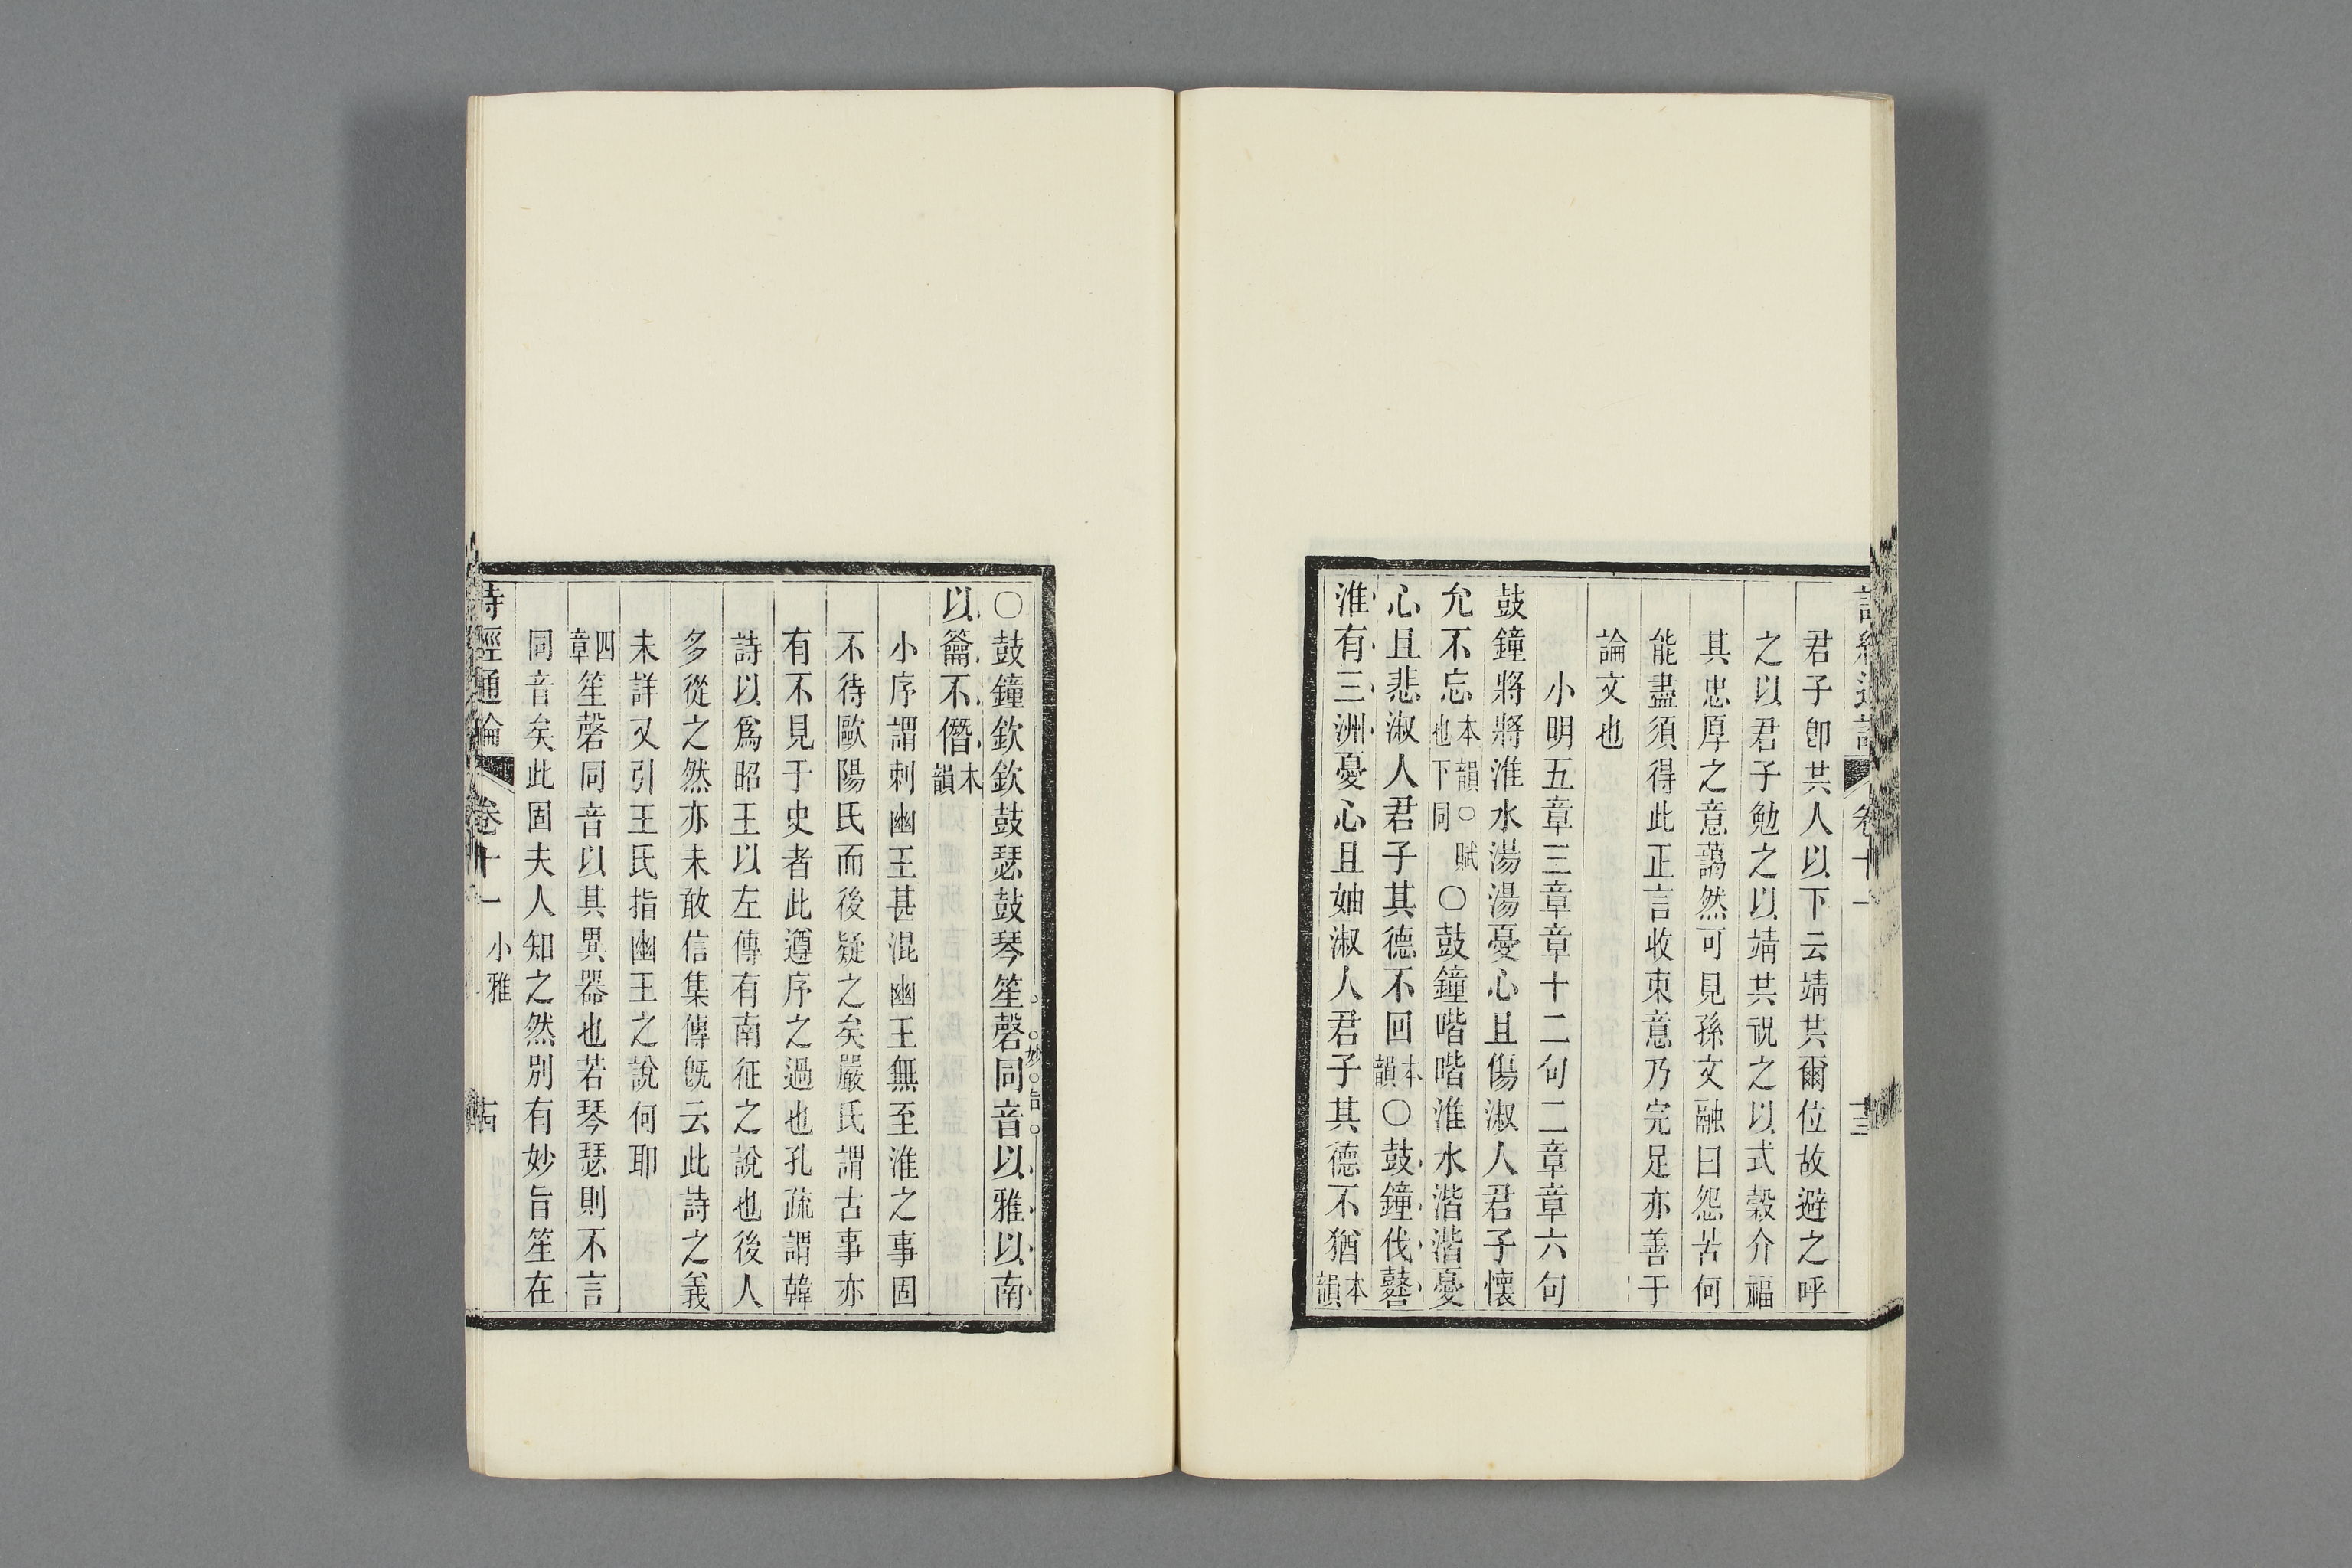 君子卽共人以下云靖共爾位故避之呼
之以君子勉之以靖共祝之以式穀介福
其忠厚之意藹然可見孫文融曰怨苦何
能盡須得此正言收束意乃完足亦善于
論文也
小明五章三章章十二句二章章六句
鼓鐘將將淮水湯湯憂心且傷淑人君子懷
允不忘本韻○賦也下同○鼓鐘喈喈淮水湝湝憂
心且悲淑人君子其德不回本韻○鼓鐘伐鼛
淮有三洲憂心且妯淑人君子其德不猶本韻
○鼓鐘欽欽鼓瑟鼓琴笙磬同音以雅以南
妙旨
以籥不僭本韻
小序謂刺幽王甚混幽王無至淮之事固
不待歐陽氏而後疑之矣嚴氏謂古事亦
有不見于史者此遵序之過也孔疏謂韓
詩以爲昭王以左傳有南征之說也後人
多從之然亦未敢信集傳旣云此詩之義
未詳又引王氏指幽王之說何耶
四章笙磬同音以其異器也若琴瑟則不言
同音矣此固夫人知之然別有妙旨笙在
詩經通論 卷十一 小雅